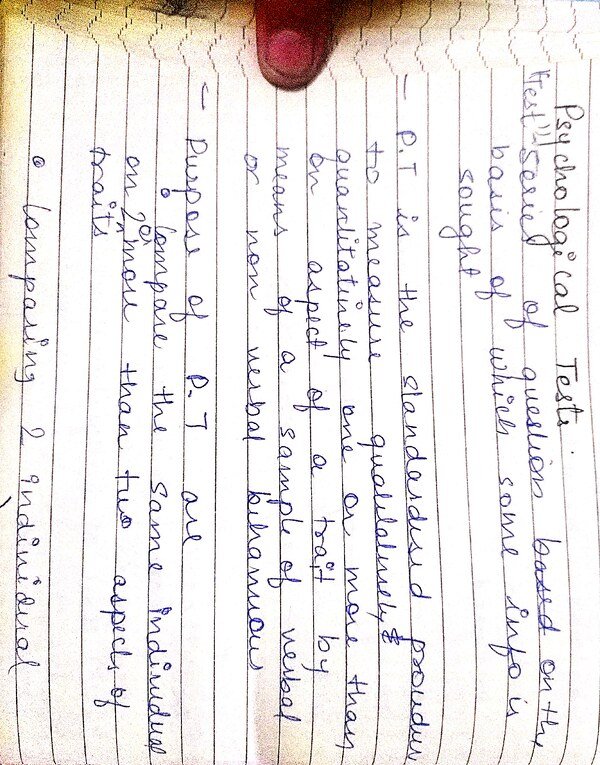 Psychological Tests
"Test" - series of questions based on the
basis of which some info is
sought
- P.T is the standardised
to measure qualitatively &
quantitatively one or more than
on aspect of a trait by
means of a sample of verbal
or non verbal behaviour
- Purpose of P.T are
• Compare the same individual
on 2 or more than two aspects of
traits
• Comparing 2 individual